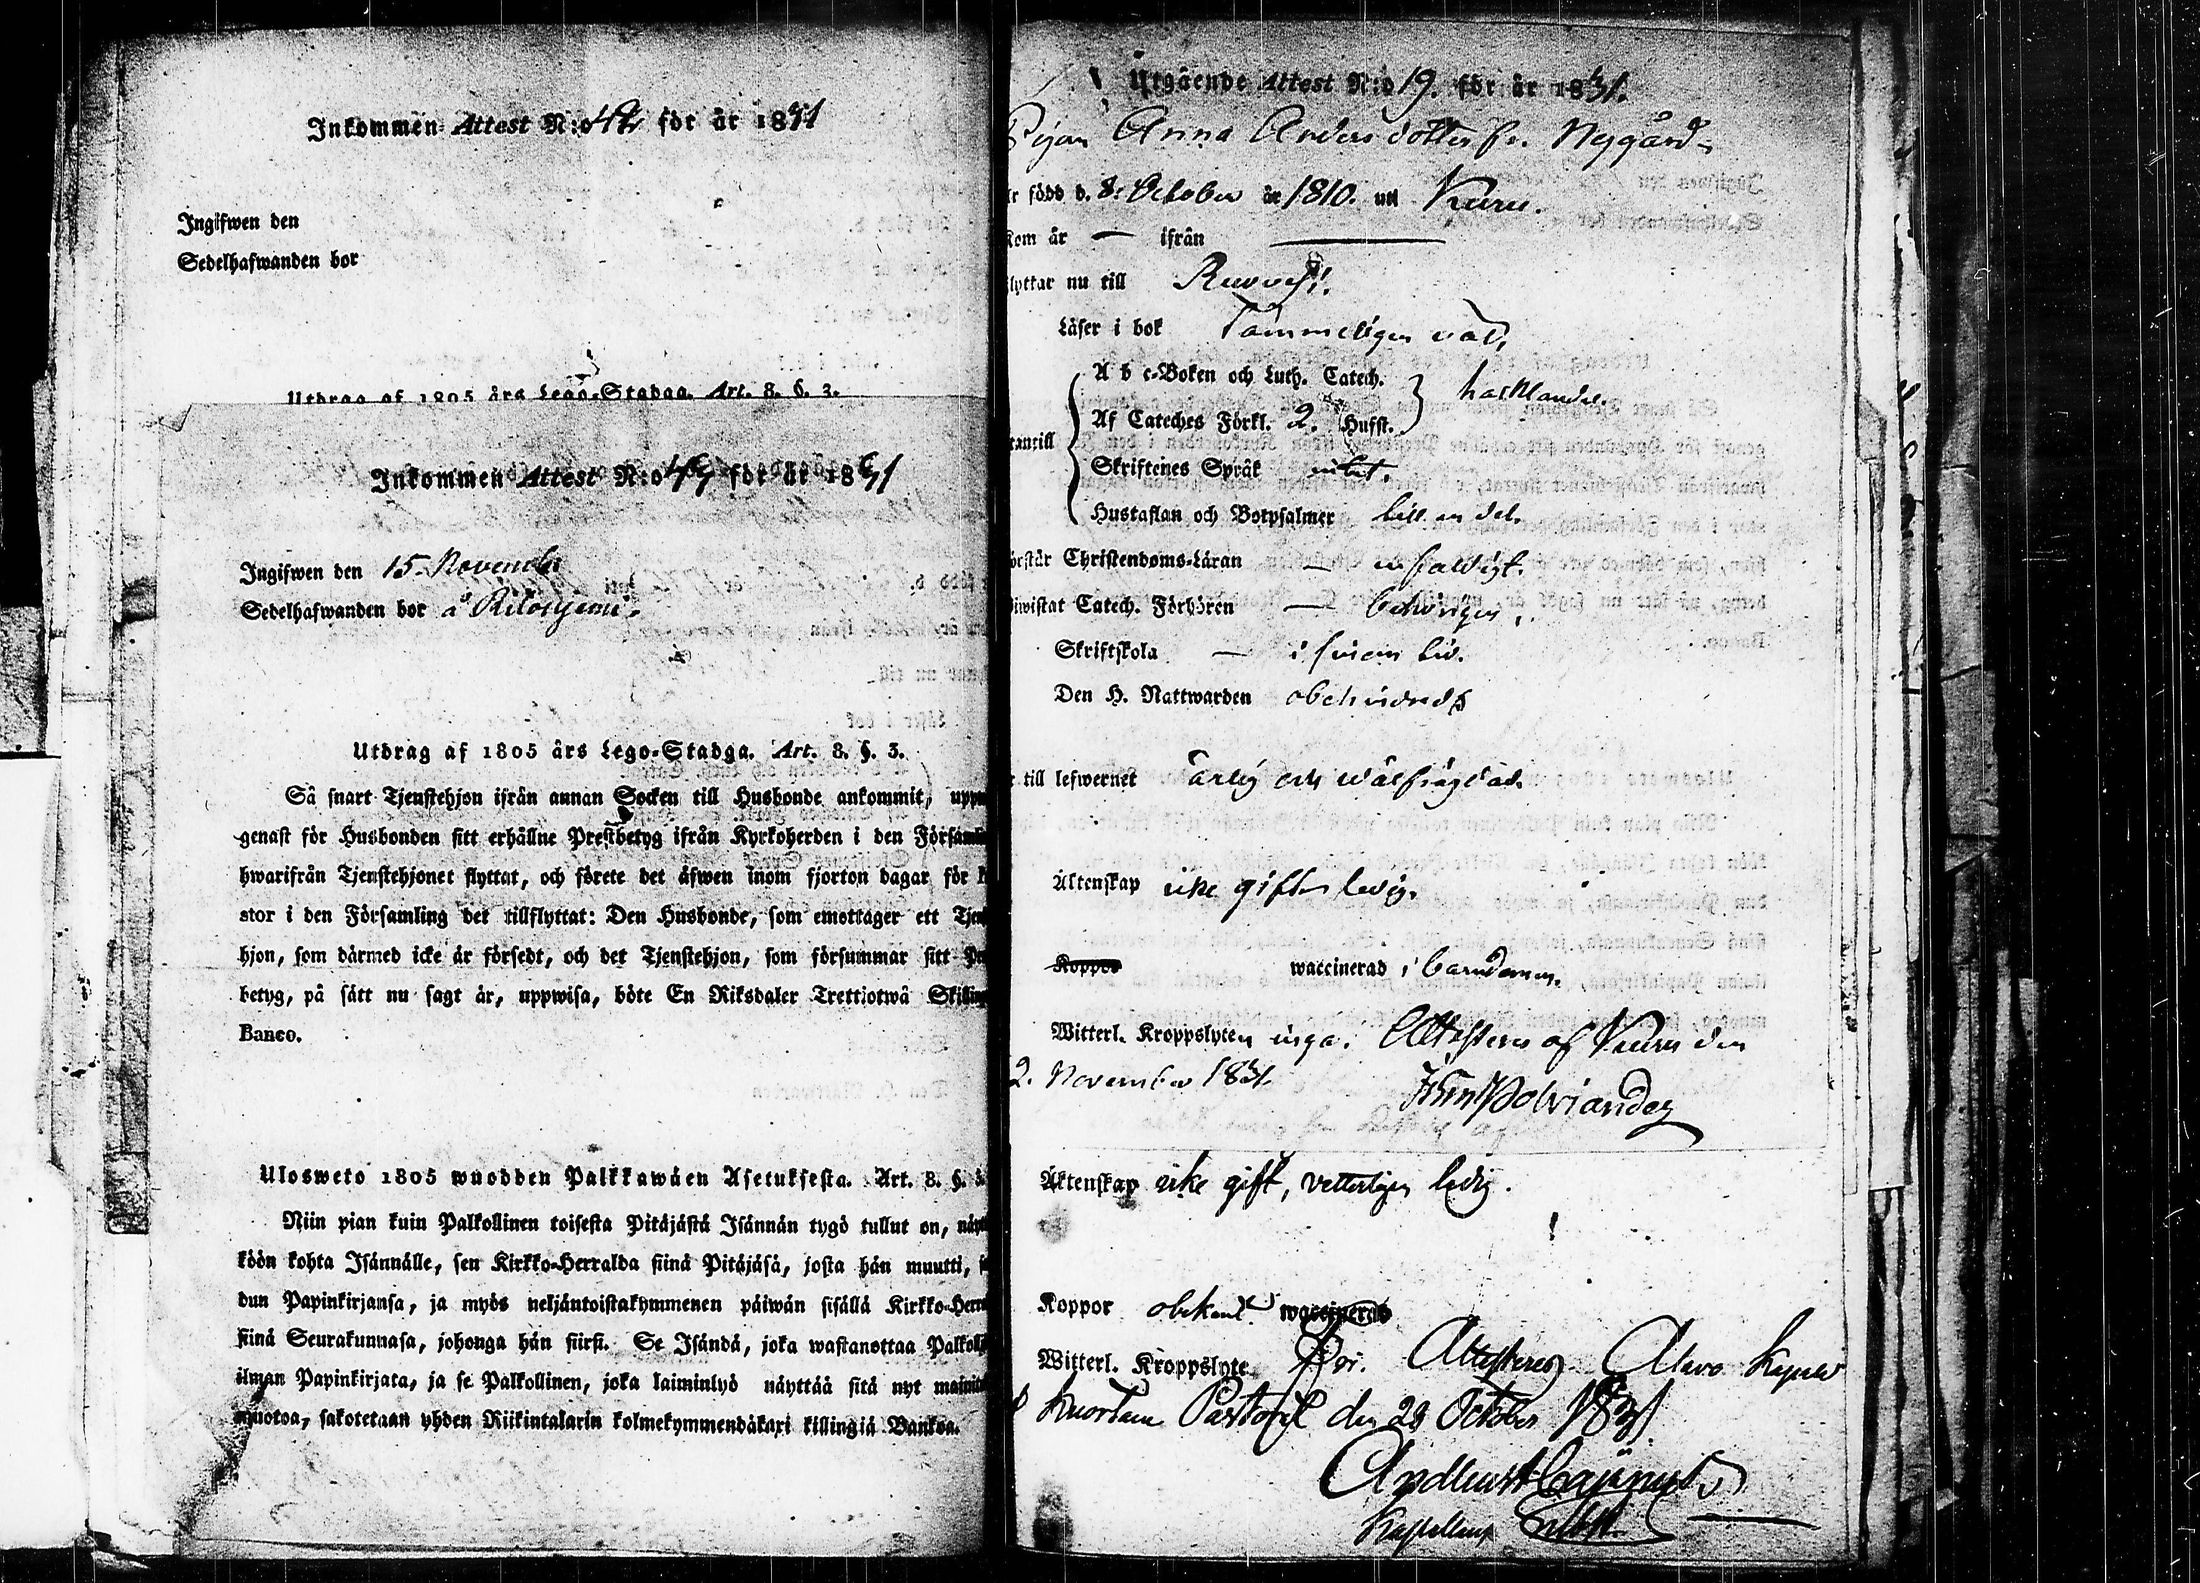 Inkommen Attest N:o för år 1831
Ingifwen den
Sedelhafwanden bor
Utdrag af 1805 års Lego-Stadga. Art. 8. §. 3.
Inkommen Attest N:o 49 för år 1831
Ingifwen den 15. Novemb
Sedelhafwanden bor å
Utdrag af 1805 års Lego-Stadga. Art. 8. §. 3.
Så snart Tjenstehjon ifrån annan Socken till Husbonde ankommit,
genast för Husbonden sitt erhållne Prestbetyg ifrån Kyrkoherden i den
hwarifrån Tjenstehjonet flyttat, och förete det äfwen inom fjorton dagar för
stor i den Församling det tillflyttat: Den Husbonde, som emottager ett
hjon, som därmed icke är försedt, och det Tjenstehjon, som försummar sitt
betyg, på sätt nu sagt är, uppwisa, böte En Riksdaler Trettiotwå
Banco.
Ulosweto 1805 wuodden Palkkawäen Asetuksesta. Art. 8. §.
Niin pian kuin Palkollinen toisesta Pitäjästä Isännän tygö tullut on,
köön kohta Isännälle, sen Kirkko-Herralda siinä Pitäjäsä, josta hän muutti,
dun Papinkirjansa, ja myös neljäntoistakymmenen päiwän sisällä
siinä Seurakunnasa, johonga hän siirsi. Se Isändä, joka wastanottaa
ilman Papinkirjata, ja se Palkollinen, joka laiminlyö näyttää sitä nyt
muotoa, sakotetaan yhden Riikintalarin kolmekymmendäkaxi killingiä Bankoa.
Utgående Attest N:o 19. för år 1831.
Pigan Anna Andersdotter fr. Nygård
är född d. 8. October år 1810. uti Kuru.
kom år — ifrån —
flyttar nu till Ruovesi.
Läser i bok Tämmeligen väl,
A b c-Boken och Luth. Catech.
Af Cateches Förkl. 2. Husst.
Skriftenes Språk intet.
Hustaflan och Botpsalmer till en del.
Förstår Christendoms-Läran — enfaldigt.
Biwistat Catech. Förhören — behörigen.
Skriftskola — i sin tid.
Den H. Nattwarden obehindrad
till lefwernet ärlig och wälfrägdad.
Äktenskap icke gift, ledig.
Koppor waccinerad i barndomen.
Witterl. Kroppslyten inga. Attesteras af Kuru den
2. November 1831.
Äktenskap icke gift, vetterligen ledig.
Koppor obekant. waccinerad
Witterl. Kroppslyte Attesteras. Alavo Kapell
Kuortane Pastorat den 28 October 1831